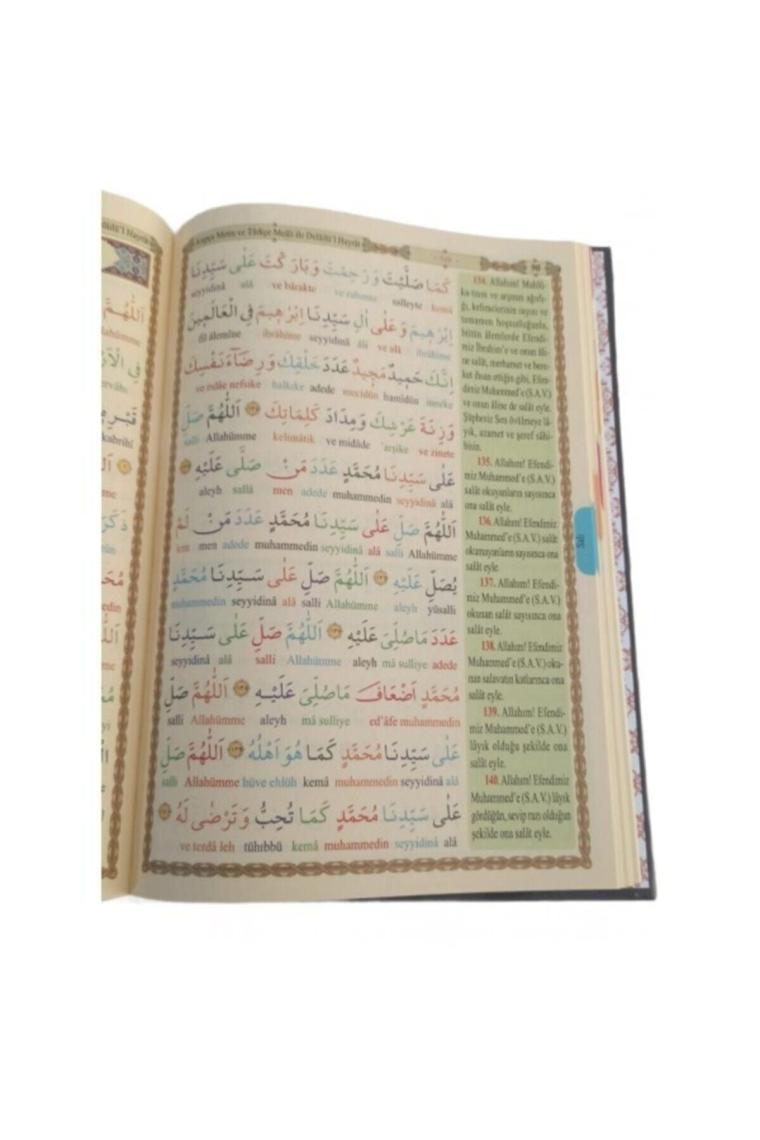 Arapça Metin ve Türkçe Meâli ile Delâilü'l Hayrât
كَمَا صَلَّيْتَ وَرَحِمْتَ وَبَارَكْتَ عَلٰى سَيِّدِنَا
seyyidinâ alâ ve bârakte ve rahımte salleyte kemâ
اِبْرٰهِيمَ وَعَلٰى اٰلِ سَيِّدِنَا اِبْرٰهِيمَ فِي الْعَالَمِينَ
fil âlemîne ibrâhîme seyyidinâ âli ve alâ ibrâhîme
اِنَّكَ حَمِيدٌ مَجِيدٌ عَدَدَ خَلْقِكَ وَرِضَٓاءَ نَفْسِكَ
ve rıdâe nefsike halkıke adede mecîdün hamîdün inneke
وَزِنَةَ عَرْشِكَ وَمِدَادَ كَلِمَاتِكَ اَللّٰهُمَّ صَلِّ
salli Allahümme kelimâtik ve midâde arşike ve zinete
عَلٰى سَيِّدِنَا مُحَمَّدٍ عَدَدَ مَنْ صَلّٰى عَلَيْهِ
aleyh sallâ men adede muhammedin seyyidinâ alâ
اَللّٰهُمَّ صَلِّ عَلٰى سَيِّدِنَا مُحَمَّدٍ عَدَدَ مَنْ لَمْ
lem men adede muhammedin seyyidinâ alâ salli Allahümme
يُصَلِّ عَلَيْهِ اَللّٰهُمَّ صَلِّ عَلٰى سَيِّدِنَا مُحَمَّدٍ
muhammedin seyyidinâ alâ salli Allahümme aleyh yüsalli
عَدَدَ مَا صُلِّيَ عَلَيْهِ اَللّٰهُمَّ صَلِّ عَلٰى سَيِّدِنَا
seyyidinâ alâ salli Allahümme aleyh mâ sulliye adede
مُحَمَّدٍ اَضْعَافَ مَا صُلِّيَ عَلَيْهِ اَللّٰهُمَّ صَلِّ
salli Allahümme aleyh mâ sulliye ed'âfe muhammedin
عَلٰى سَيِّدِنَا مُحَمَّدٍ كَمَا هُوَ اَهْلُهُ اَللّٰهُمَّ صَلِّ
salli Allahümme hüve ehlüh kemâ muhammedin seyyidinâ alâ
عَلٰى سَيِّدِنَا مُحَمَّدٍ كَمَا تُحِبُّ وَتَرْضٰى لَهُ
ve terdâ leh tühıbbü kemâ muhammedin seyyidinâ alâ
134. Allahım! Mahlû-
katının ve arşının ağırlı-
ğı, kelimelerinin sayısı ve
tamamen hoşnutluğunla,
bütün âlemlerde Efendi-
miz İbrahim'e ve onun âli-
ne salât, merhamet ve bere-
ket ihsan ettiğin gibi, Efen-
dimiz Muhammed'e (S.A.V.)
ve onun âline de salât eyle.
Şüphesiz Sen övülmeye lâ-
yık, azamet ve şeref sâhi-
bisin.
135. Allahım! Efendi-
miz Muhammed'e (S.A.V.)
salât okuyanların sayısınca
ona salât eyle.
136. Allahım! Efendimiz
Muhammed'e (S.A.V.) salât
okumayanların sayısınca ona
salât eyle.
137. Allahım! Efendi-
miz Muhammed'e (S.A.V.)
okunan salât sayısınca ona
salât eyle.
138. Allahım! Efendimiz
Muhammed'e (S.A.V.) oku-
nan salavatın katlarınca ona
salât eyle.
139. Allahım! Efendi-
miz Muhammed'e (S.A.V.)
lâyık olduğu şekilde ona
salât eyle.
140. Allahım! Efendimiz
Muhammed'e (S.A.V.) lâyık
gördüğün, sevip razı olduğun
şekilde ona salât eyle.
Salı